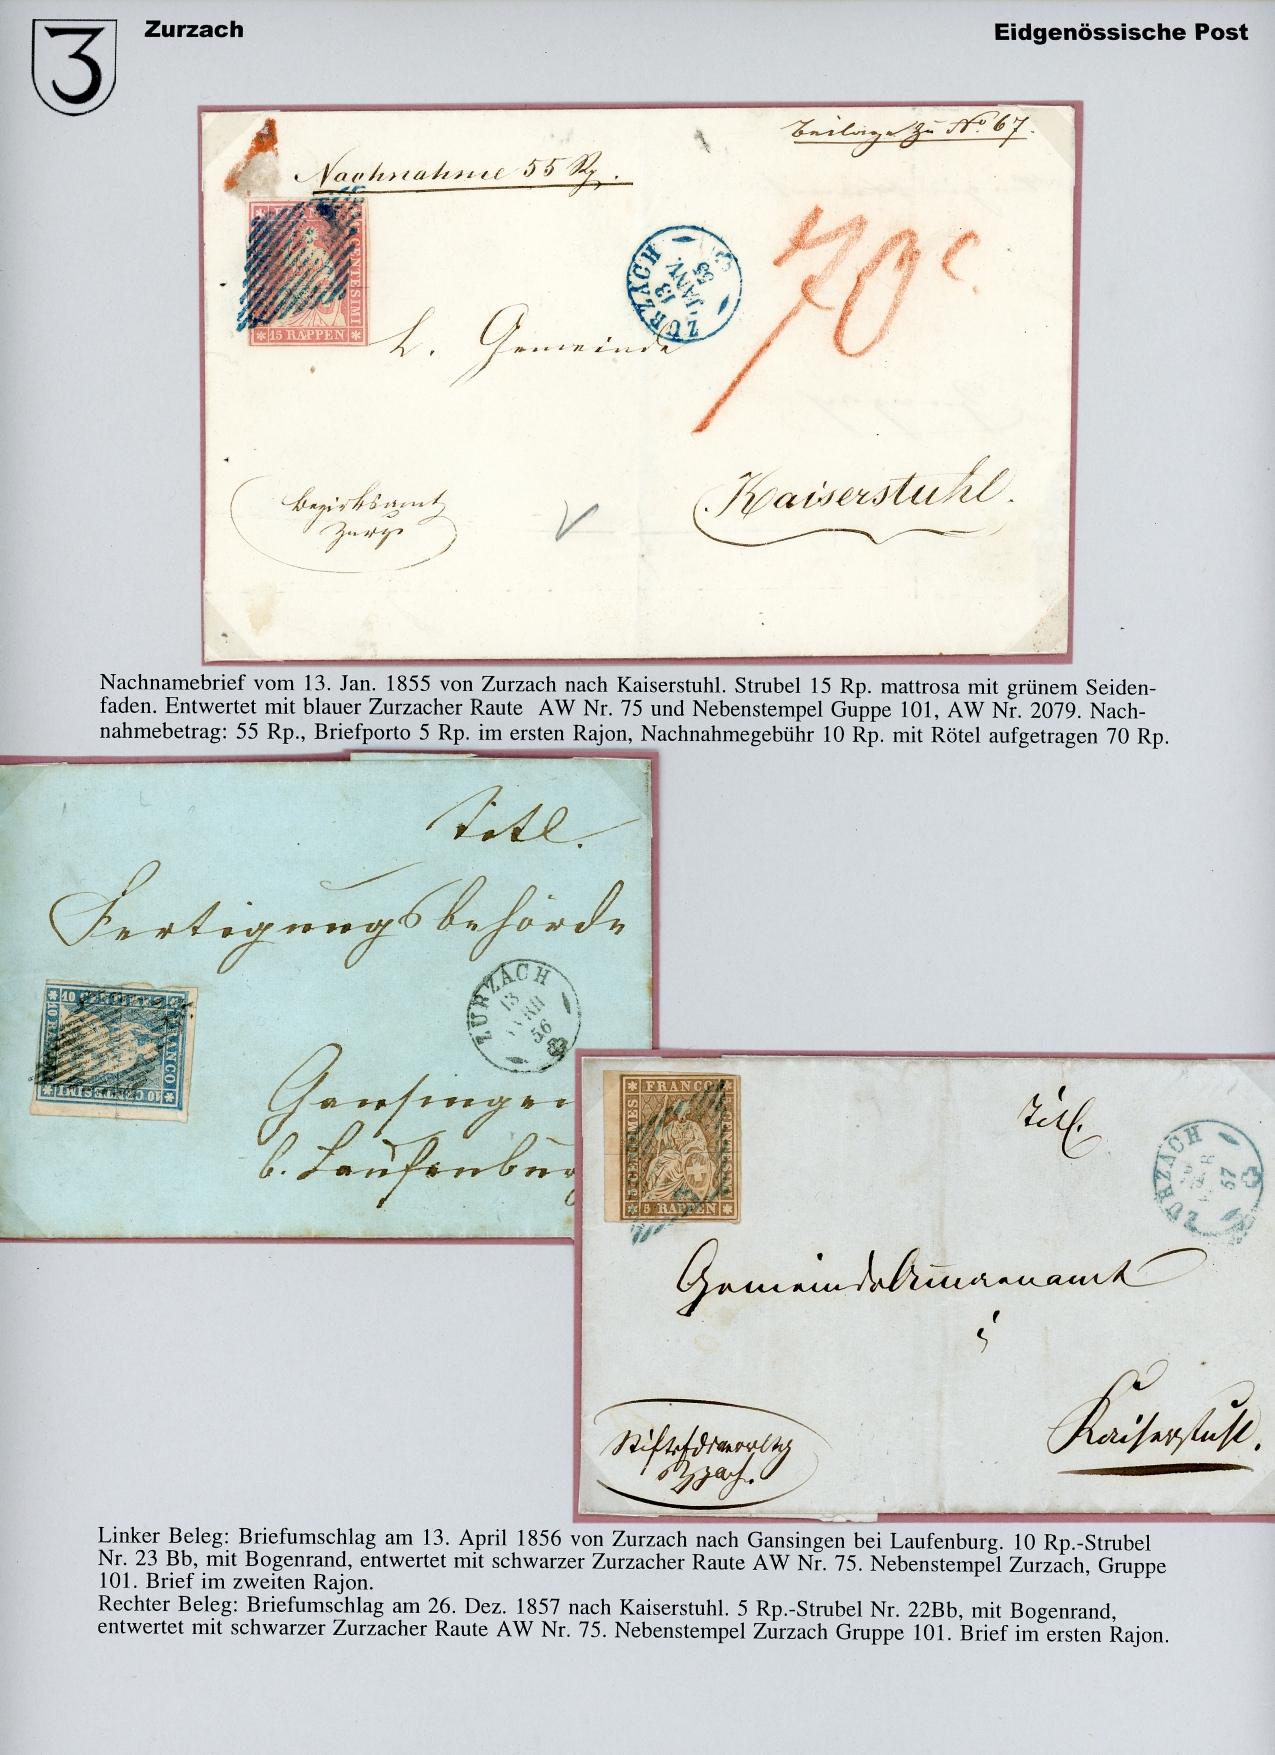 3
Zurzach
Eidgenössische Post
Beilage zu No 67.
Nachnahme 55 Rp.
15 RAPPEN
CENTESIMI
ZURZACH
13
JANV.
70 c
L. Gemeinde
Bezirksamt
Kaiserstuhl.
Nachnamebrief vom 13. Jan. 1855 von Zurzach nach Kaiserstuhl. Strubel 15 Rp. mattrosa mit grünem Seiden-
faden. Entwertet mit blauer Zurzacher Raute AW Nr. 75 und Nebenstempel Guppe 101, AW Nr. 2079. Nach-
nahmebetrag: 55 Rp., Briefporto 5 Rp. im ersten Rajon, Nachnahmegebühr 10 Rp. mit Rötel aufgetragen 70 Rp.
Titl.
Fertigungsbehörde
ZURZACH
13
56
10 CENTESIMI
Gansingen
b. Laufenburg
FRANCO
5 RAPPEN
Titl.
ZURZACH
57
Gemeindsammanamt
Kaiserstuhl.
Stiftsverwaltg
Linker Beleg: Briefumschlag am 13. April 1856 von Zurzach nach Gansingen bei Laufenburg. 10 Rp.-Strubel
Nr. 23 Bb, mit Bogenrand, entwertet mit schwarzer Zurzacher Raute AW Nr. 75. Nebenstempel Zurzach, Gruppe
101. Brief im zweiten Rajon.
Rechter Beleg: Briefumschlag am 26. Dez. 1857 nach Kaiserstuhl. 5 Rp.-Strubel Nr. 22Bb, mit Bogenrand,
entwertet mit schwarzer Zurzacher Raute AW Nr. 75. Nebenstempel Zurzach Gruppe 101. Brief im ersten Rajon.